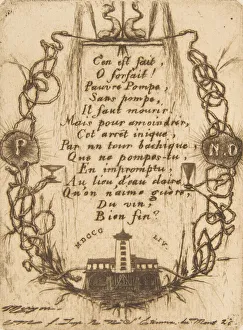 C'en est fait,
O forfait!
Pauvre Pompe,
Sans pompe,
Il faut mourir.
Mais pour amoindrir,
Cet arrêt inique,
Par un tour bachique,
Que ne pompes-tu,
En impromptu,
Au lieu d'eau claire,
Qu'on n'aime guère,
Du vin,
Bien fin?
P
N D
MDCCC LIV.